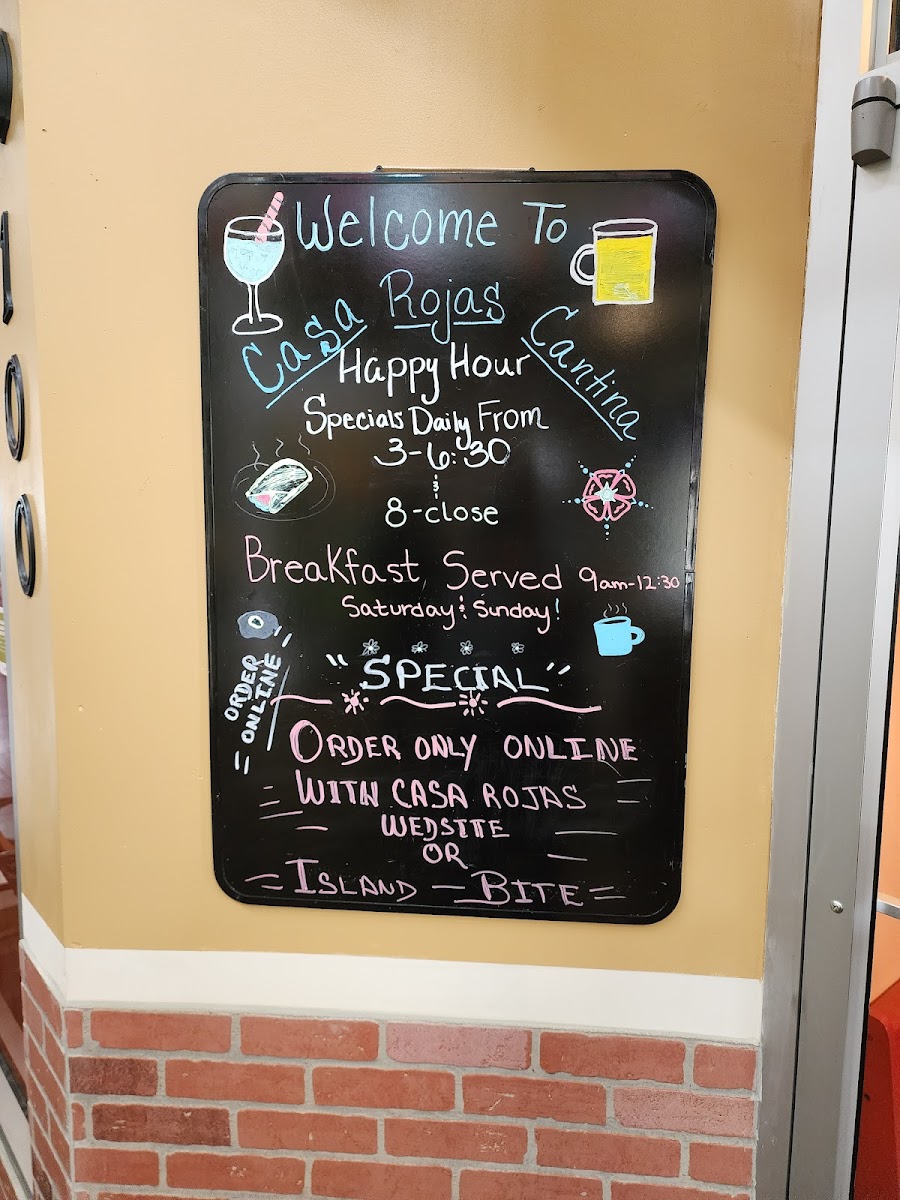 Welcome To
Casa Rojas Cantina
Happy Hour
Specials Daily From
3-6:30
&
8-close
Breakfast Served 9am-12:30
Saturday & Sunday!
"SPECIAL"
ORDER
ONLINE
ORDER ONLY ONLINE
WITH CASA ROJAS
WEDSITE
OR
ISLAND - BITE